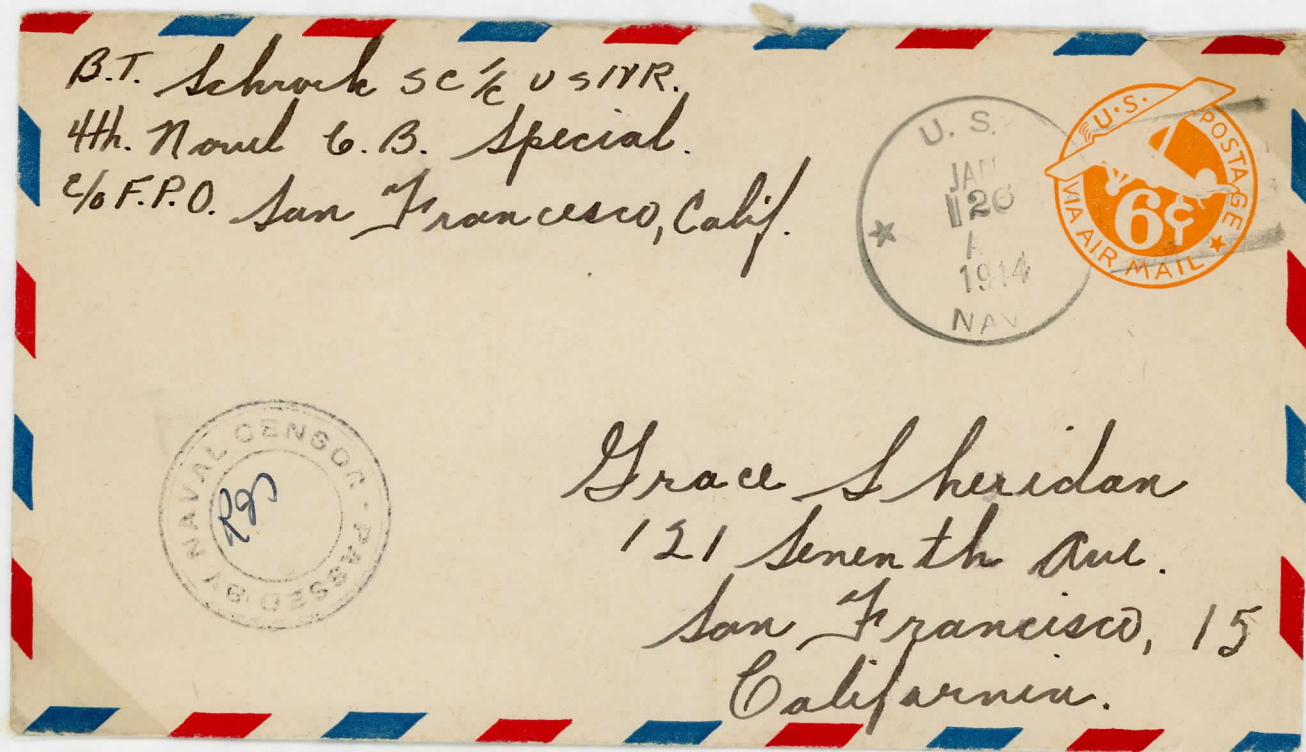 B.T. Schrock SC 1/c USNR.
4th. Naval C.B. Special.
c/o F.P.O. San Francesco, Calif.
U.S.
JAN
26
A
1914
NAV
U.S. POSTAGE
6¢
VIA AIR MAIL
PASSED BY NAVAL CENSOR
Grace Sheridan
121 Seventh Ave.
San Francisco, 15
California.